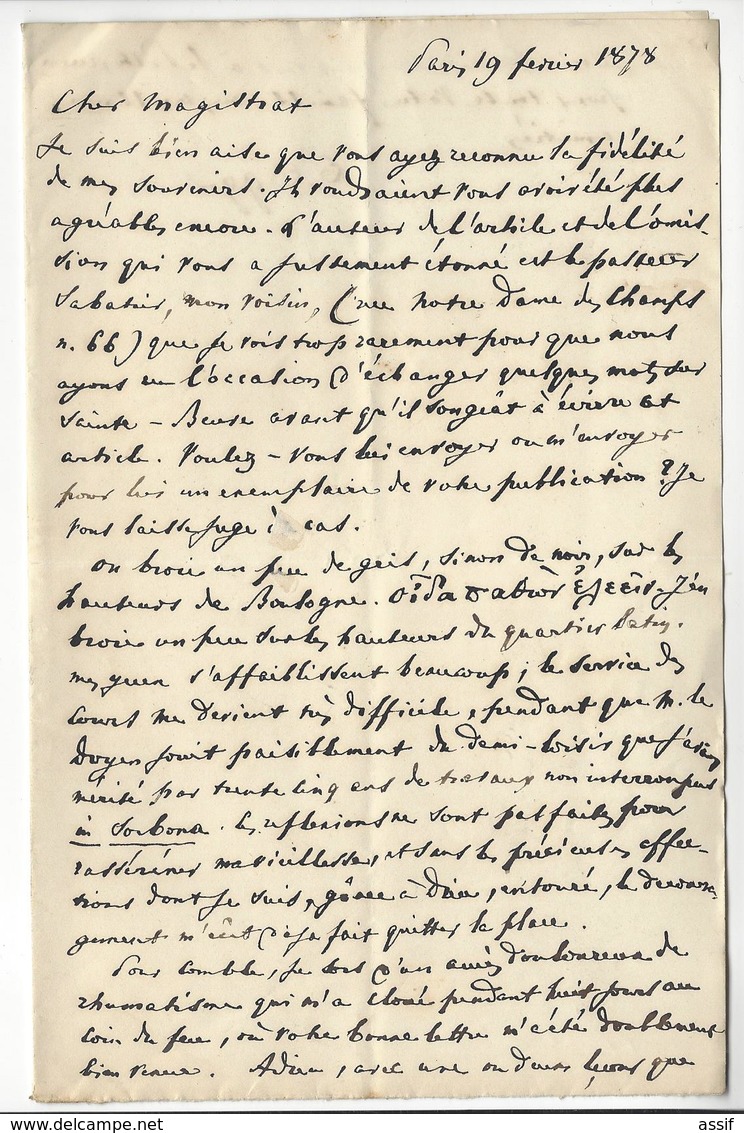 Paris 19 fevrier 1878
Cher Magistrat
Je suis bien aise que vous ayez reconnu la fidélité
de mes souvenirs. Ils voudraient vous avoir été plus
agréables encore. L'auteur de l'article et de l'omis-
sion qui vous a justement étonné est le pasteur
Sabatier, mon voisin, (rue Notre Dame des Champs
n. 66) que je vois trop rarement pour que nous
ayons eu l'occasion d'échanger quelques mots sur
Sainte-Beuve avant qu'il songeât à écrire cet
article. Voulez-vous lui envoyer ou m'envoyer
pour lui un exemplaire de votre publication? Je
vous laisse juge du cas.
On broie un peu de gris, sinon de noir, sur les
hauteurs de Boulogne. J'en
broie un peu sur les hauteurs du quartier latin.
mes yeux s'affaiblissent beaucoup; le service des
cours me devient très difficile, pendant que M. le
Doyen jouit paisiblement du demi-loisir que j'avais
mérité par trente cinq ans de travaux non interrompus
in Sorbona. Ces réflexions ne sont pas faites pour
rasséréner ma vieillesse, et sans les précieuses affec-
tions dont je suis, grâce à Dieu, entouré, le découra-
gement m'eût déjà fait quitter la place.
Pour comble, je sors d'un accès douloureux de
rhumatisme qui m'a cloué pendant huit jours au
coin du feu, où votre bonne lettre m'a été doublement
bien venue. Adieu, avec une ou deux leçons que
assif